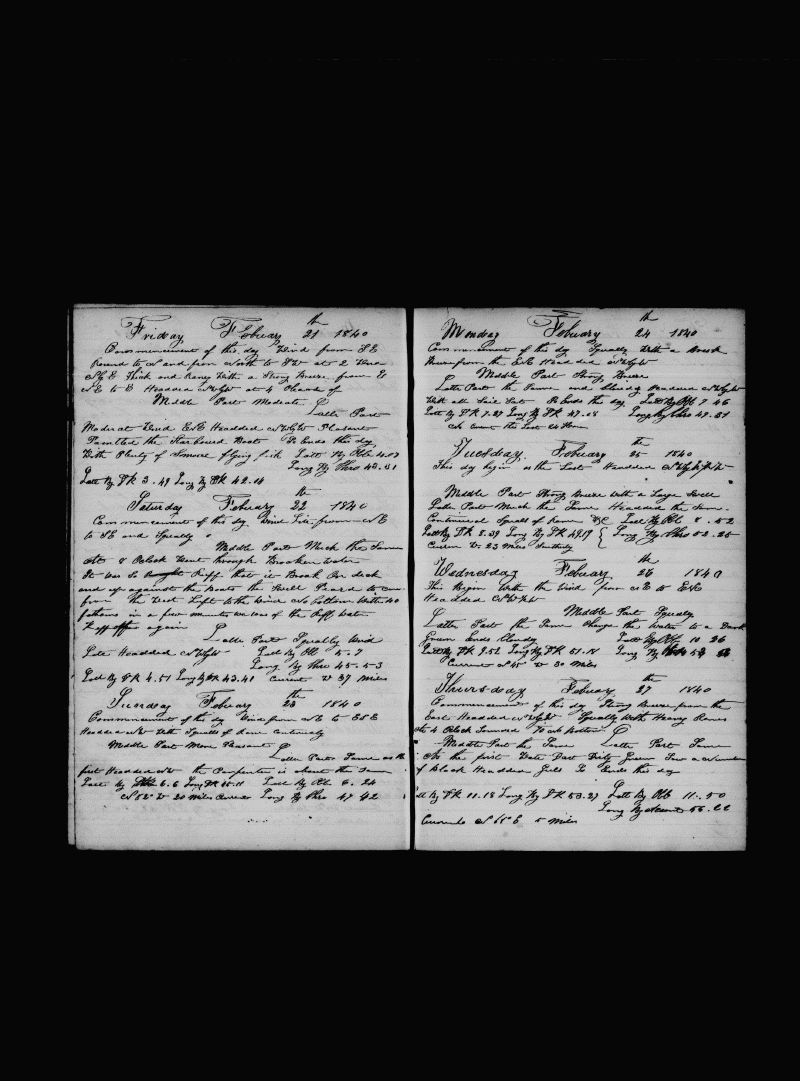 Friday Febuary 21 th 1840
Commencement of this day Wind from SE
Round to N and from North to SW at 2 Wind
Thick and Raney With a Strong Breeze from E
NE to E Headded NWbyW at 4 Pleasd of
Middle Part Moderate
Latter Part
Moderat Wind ENE Headded NWbyW Pleasent
Painted the Starboard Boats So Ends the day
With Plenty of flying fish Latt By Ob 4.07
Long By Chro 43.31
Latt By DR 3.49 Long By DR 42.14
Saturday Febuary 22 th 1840
Commencement of this day Wind from NE
to SE and Squally
Middle Part Much the Same
At 8 Oclock Went through Brooken Water
It was So Ruff that it Broak On deck
and up against the boats the Swell
from the West Luft to the Wind No bottom With 40
fathoms in a few minutes we was of the Ruff Water
Kept off again
Latter Part Squally Wind
Latt By Ob 5.7
Long By Chro 45.53
Latt By DR 4.51 Long By DR 43.41 Current W 37 Miles
Sunday Febuary 23 th 1840
Commencement of this day Wind from NE to ESE
Headded NW With Squalls of Rane Continualy
Middle Part More Pleasant
Latter Part Same as the
first Headded NW the Carpenter is about the Same
Latt By DR 6.6 Long DR Latt By Ob 6.24
W 20 Miles Current Long By Chro 47 42
Monday Febuary 24 th 1840
Commencement of this day Squally With a Brisk
Breeze from the ENE Headded NWbyW
Middle Part Strong Breeze
Latter Part the Same and Steady Headded NWbyW
With all Sail Set So Ends the day Latt By Ob 7 46
Latt By DR 7.27 Long By DR 47.08 Long By Chro 49.51
No Current the Last 24 Hours
Tuesday Febuary 25 th 1840
This day begins as the Last Headded
Middle Part Strong Breeze With a Large Swell
Latter Part Much the Same Headded the Same
Continueal Squalls of Rane &c Latt By Ob 8.52
Latt By DR 8.39 Long By DR 49.19 Long By Chro 52.25
Current W 23 Miles
Wednesday Febuary 26 th 1840
This Begins With the Wind from NE to ENE
Headded
Middle Part Squally
Latter Part the Same Change the Water to a Dark
Green Ends Cloudy Latt By Ob 10 26
Latt By DR 9.52 Long By DR 51.18 Long By Chro
Current W 30 Miles
Thursday Febuary 27 th 1840
Commencement of this day Strong Breeze from the
East Headded NWbyW Squally With Heavy Ranes
At 4 Oclock Sounded No bottom
Middle Part the Same Latter Part Same
As the first Water Dark Dirty Green Saw a Number
of Black Headded Gulls So Ends this day
Latt By DR 11.18 Long By DR 53.27 Latt By Ob 11.50
Long By
5 Miles